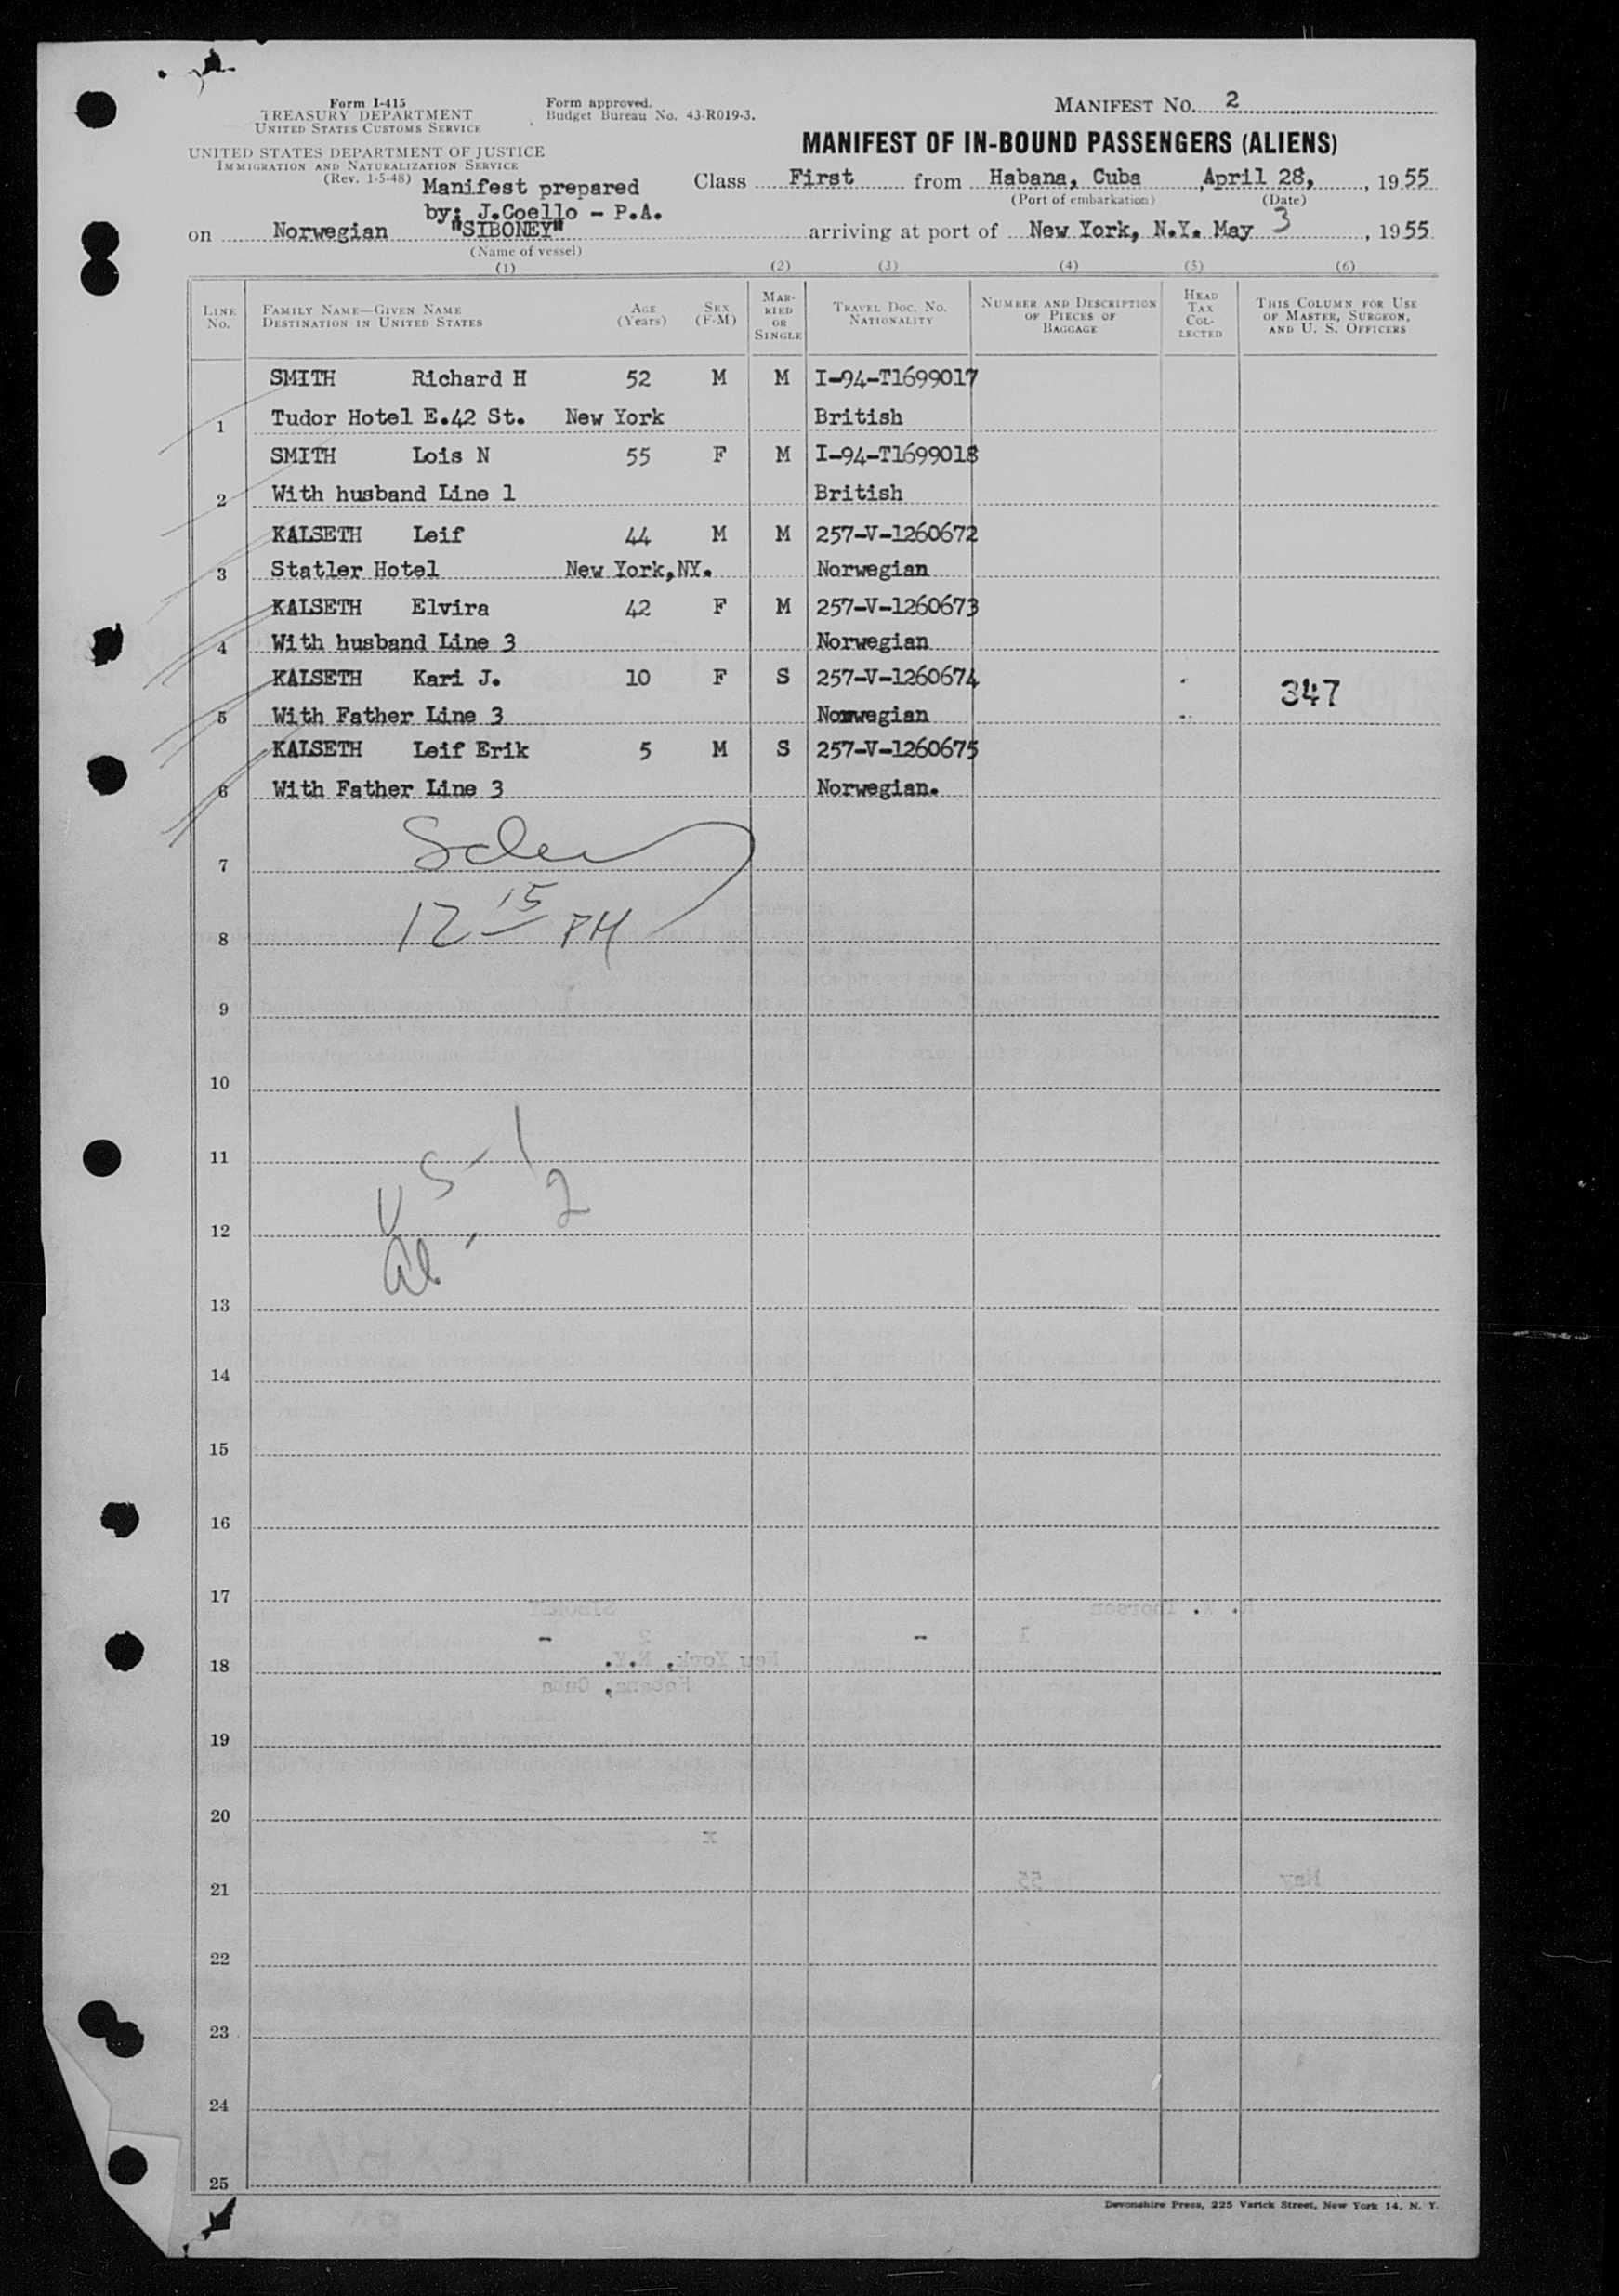 Form I-415
TREASURY DEPARTMENT
UNITED STATES CUSTOMS SERVICE
Form approved.
Budget Bureau No. 43-R019-3.
MANIFEST NO. 2
UNITED STATES DEPARTMENT OF JUSTICE
IMMIGRATION AND NATURALIZATION SERVICE
(Rev. 1-5-48)
MANIFEST OF IN-BOUND PASSENGERS (ALIENS)
Manifest prepared
by; J.Coello - P.A.
Class First from Habana, Cuba , April 28, , 1955
(Port of embarkation) (Date)
on Norwegian "SIBONEY" arriving at port of New York, N.Y. May 3 , 1955
(Name of vessel)
(1) (2) (3) (4) (5) (6)
LINE No. FAMILY NAME—GIVEN NAME DESTINATION IN UNITED STATES AGE (Years) SEX (F-M) MARRIED OR SINGLE TRAVEL DOC. NO. NATIONALITY NUMBER AND DESCRIPTION OF PIECES OF BAGGAGE HEAD TAX COLLECTED THIS COLUMN FOR USE OF MASTER, SURGEON, AND U. S. OFFICERS
SMITH Richard H 52 M M I-94-T1699017
1 Tudor Hotel E.42 St. New York British
SMITH Lois N 55 F M I-94-T1699018
2 With husband Line 1 British
KALSETH Leif 44 M M 257-V-1260672
3 Statler Hotel New York,NY. Norwegian
KALSETH Elvira 42 F M 257-V-1260673
4 With husband Line 3 Norwegian
KALSETH Kari J. 10 F S 257-V-1260674 347
5 With Father Line 3 Norwegian
KALSETH Leif Erik 5 M S 257-V-1260675
6 With Father Line 3 Norwegian.
7
12 15 PM
8
9
10
11 US - 1
12 al - 2
13
14
15
16
17
18
19
20
21
22
23
24
25
Devonshire Press, 225 Varick Street, New York 14, N. Y.